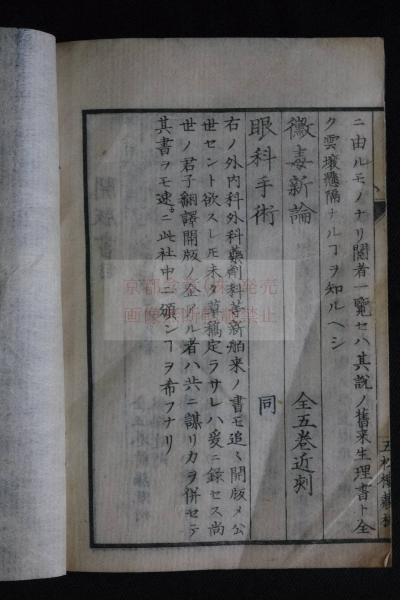 ニ由ルモノナリ閲者一覧セハ其説ノ舊来生理書ト全
ク雲壌懸隔ナルヿヲ知ルヘシ
黴毒新論 全五巻近刻
眼科手術 同
右ノ外内科外科藥劑科等新舶来ノ書モ追々開版メ公
世セント欲スレ𪜈未タ草稿定ラサレハ爰ニ録セス尚
世ノ君子翻譯開版ノ企アル者ハ共ニ謀リ力ヲ併セテ
其書ヲモ速ニ此社中ニ頒ンヿヲ希フナリ
画像の無断転載禁止